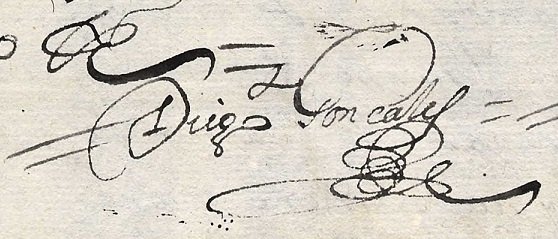 Diego Goncales